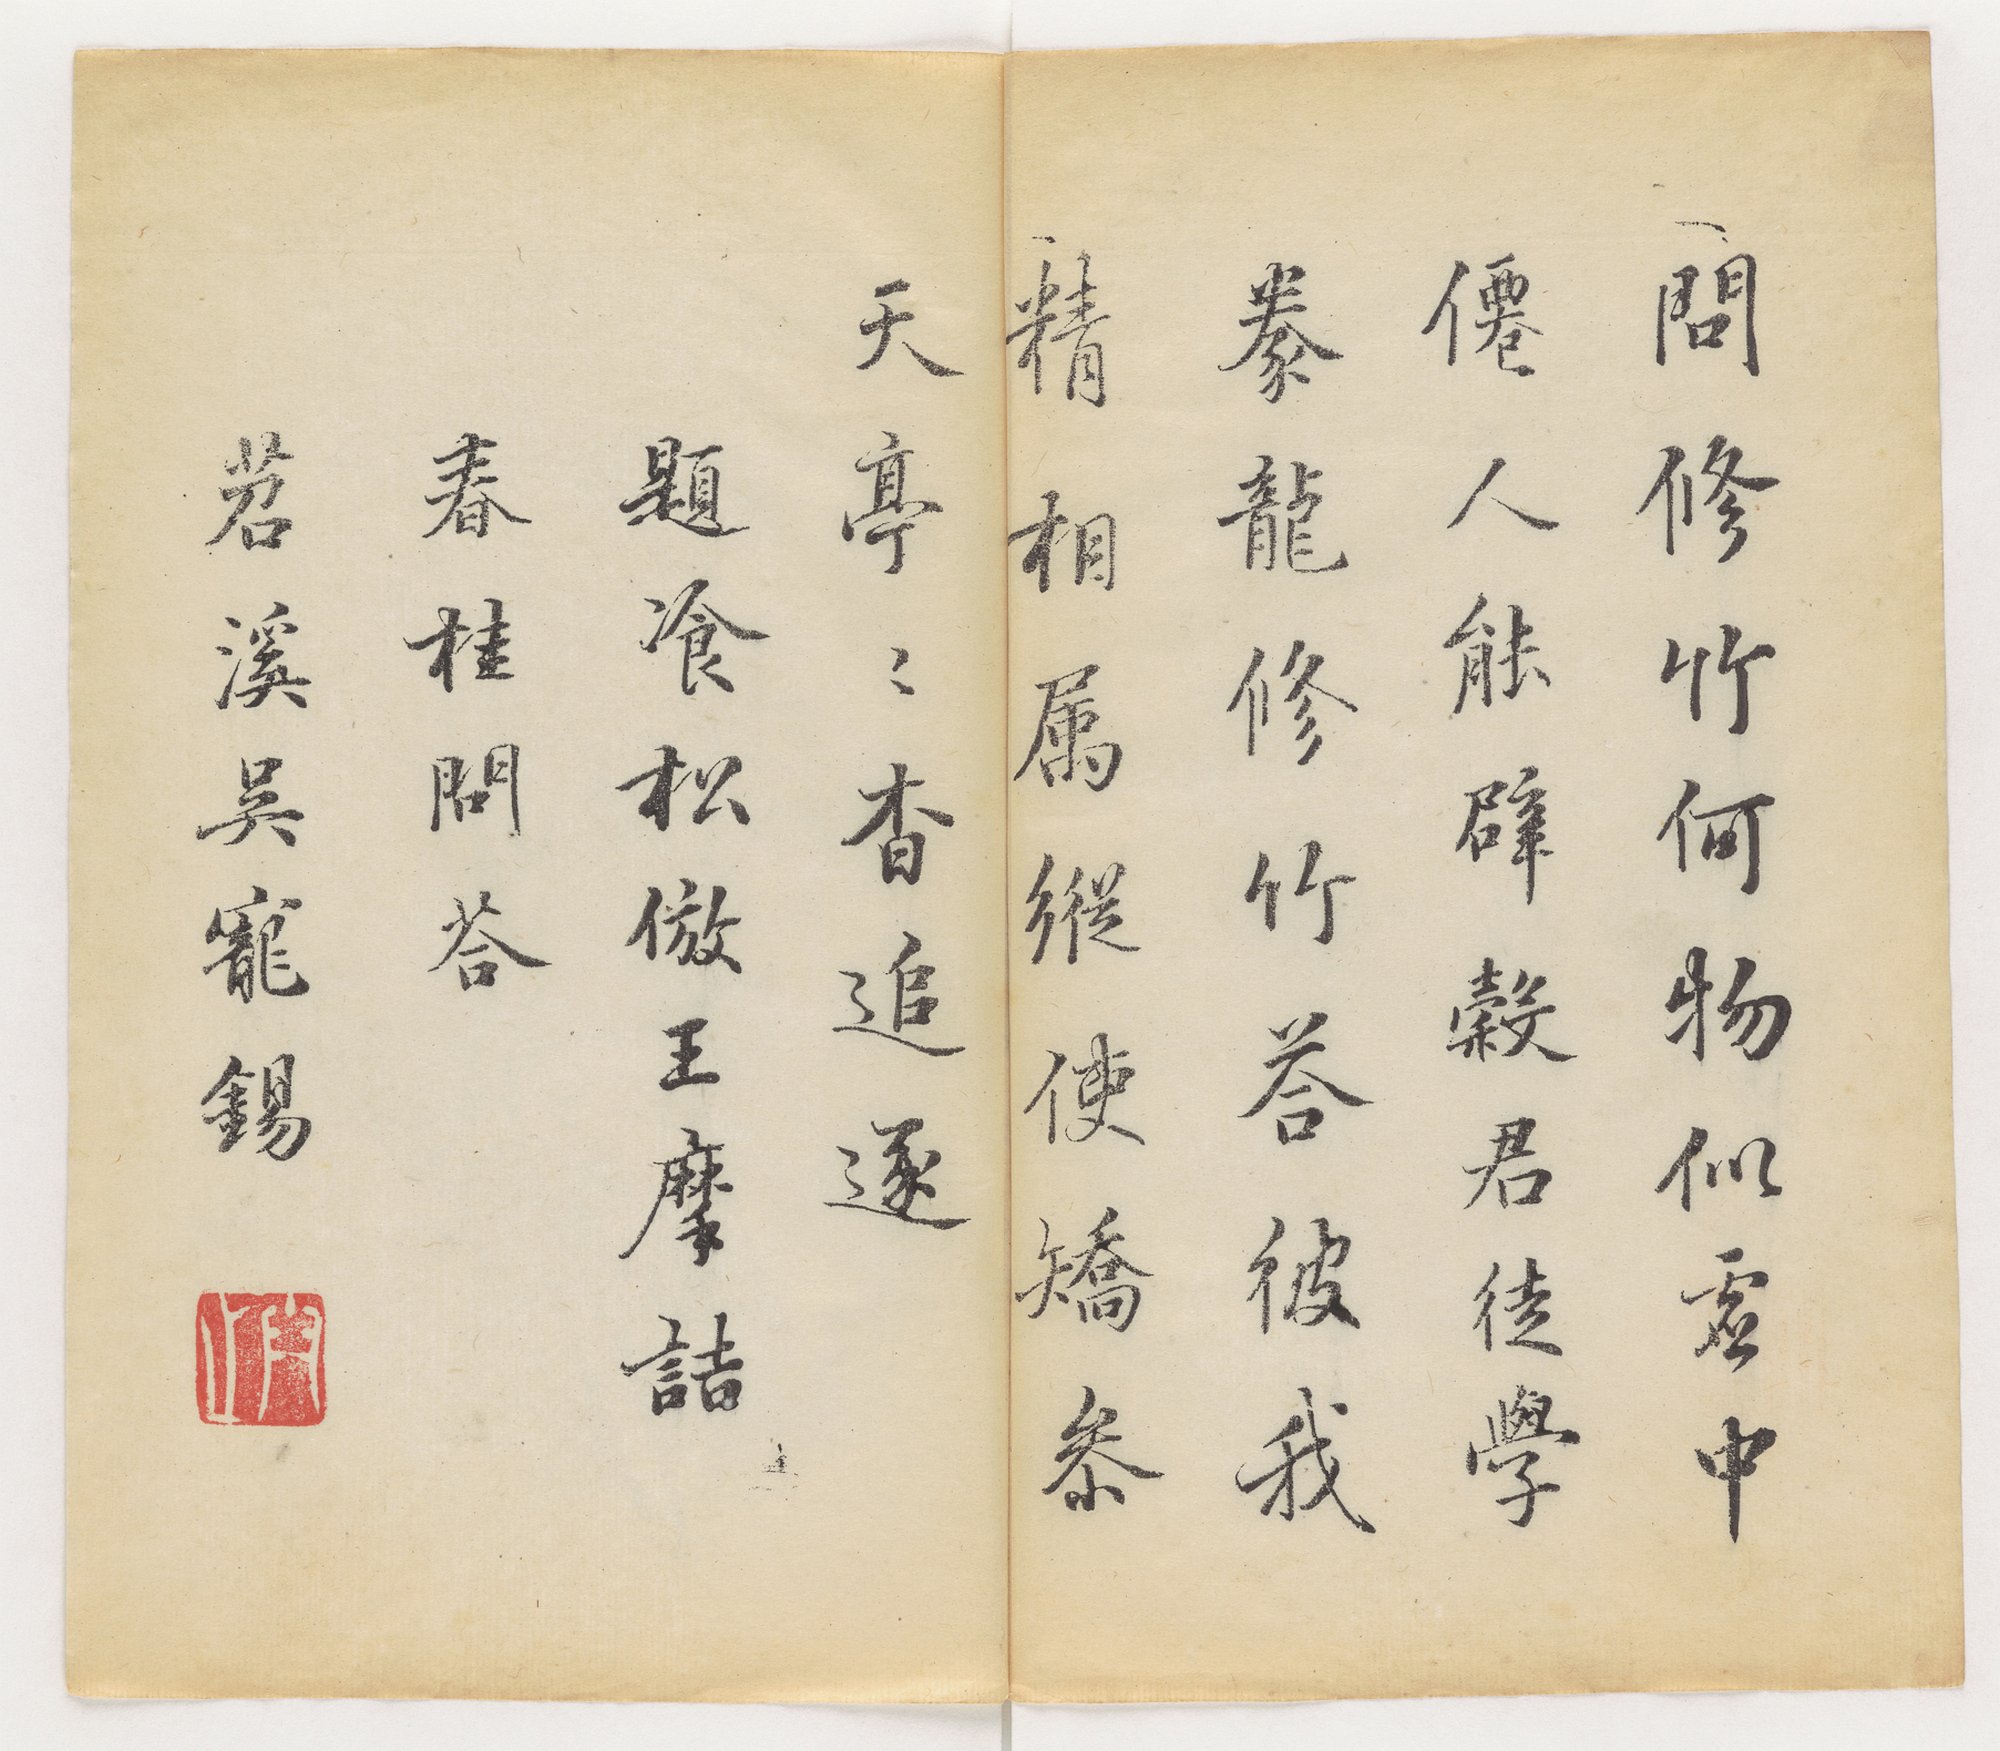 問修竹何物似虛中
僊人能辟穀君徒學
豢龍修竹荅彼我
精相屬縱使矯叅
天亭〻杳追逐
題飡松倣王摩詰
春桂問荅
苕溪吳寵錫